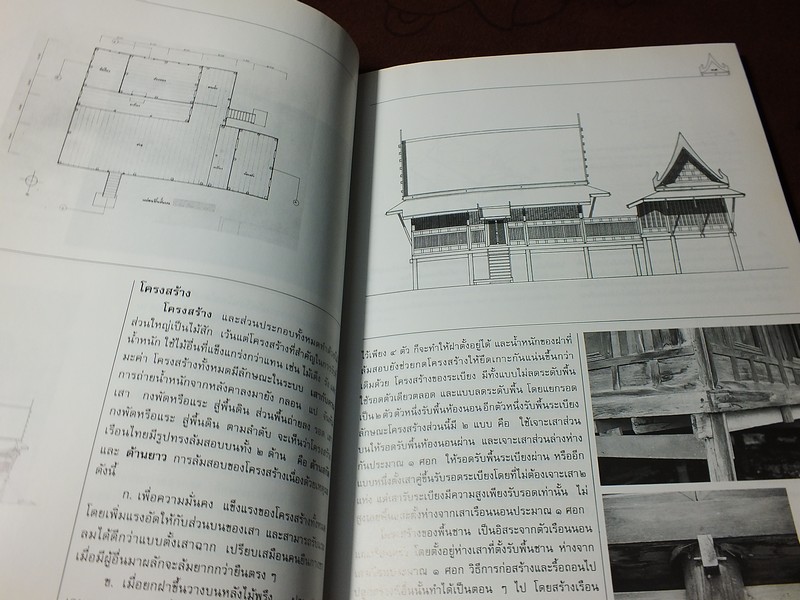 โครงสร้าง
โครงสร้าง และส่วนประกอบทั้งหมด
ส่วนใหญ่เป็นไม้สัก เว้นแต่โครงสร้างที่สำคัญ
น้ำหนัก ใช้ไม้อื่นที่แข็งแกร่งกว่าแทน เช่น ไม้เต็ง รัง
มะค่า โครงสร้างทั้งหมดมีลักษณะในระบบ เสากับคาน
การถ่ายน้ำหนักจากหลังคาลงมายัง กลอน แป
เสา กงพัดหรือแระ สู่พื้นดิน ส่วนพื้นถ่ายลง รอด เสา
กงพัดหรือแระ สู่พื้นดิน ตามลำดับ จะเห็นว่าโครงสร้าง
เรือนไทยมีรูปทรงล้มสอบบนทั้ง ๒ ด้าน คือ ด้านสกัด
และ ด้านยาว การล้มสอบของโครงสร้างเนื่องด้วยเหตุผล
ดังนี้
ก. เพื่อความมั่นคง แข็งแรงของโครงสร้างทั้งหมด
โดยเพิ่มแรงอัดให้กับส่วนบนของเสา และสามารถรับแรง
ลมได้ดีกว่าแบบตั้งเสาฉาก เปรียบเสมือนคนยืน
เมื่อมีผู้อื่นมาผลักจะล้มยากกว่ายืนตรง ๆ
ข. เมื่อยกฝาขึ้นวางบนหลังไม้พรึง
ไว้เพียง ๔ ตัว ก็จะทำให้ฝาตั้งอยู่ได้ และน้ำหนักของฝาที่
ล้มสอบยังช่วยกดโครงสร้างให้ยึดเกาะกันแน่นขึ้นกว่า
เดิมด้วย โครงสร้างของระเบียง มีทั้งแบบไม่ลดระดับพื้น
ใช้รอดตัวเดียวตลอด และแบบลดระดับพื้น โดยแยกรอด
เป็น ๒ ตัว ตัวหนึ่งรับพื้นห้องนอน อีกตัวหนึ่งรับพื้นระเบียง
ลักษณะโครงสร้างส่วนนี้มี ๒ แบบ คือ ใช้เจาะเสาส่วน
บนให้รอดรับพื้นห้องนอนผ่าน และเจาะเสาส่วนล่างห่าง
กันประมาณ ๑ ศอก ให้รอดรับพื้นระเบียงผ่าน หรืออีก
แบบหนึ่งตั้งเสาคู่ขึ้นรับรอดระเบียงโดยที่ไม่ต้องเจาะเสา ๒
แห่ง แต่เสารับระเบียงมีความสูงเพียงรับรอดเท่านั้น ไม่
และตั้งห่างจากเสาเรือนนอนประมาณ ๑ ศอก
ของพื้นชาน เป็นอิสระจากตัวเรือนนอน
โดยตั้งอยู่ห่างเสาที่ตั้งรับพื้นชาน ห่างจาก
๑ ศอก วิธีการก่อสร้างและรื้อถอนไป
นั้นทำได้เป็นตอน ๆ ไป โดยสร้างเรือน